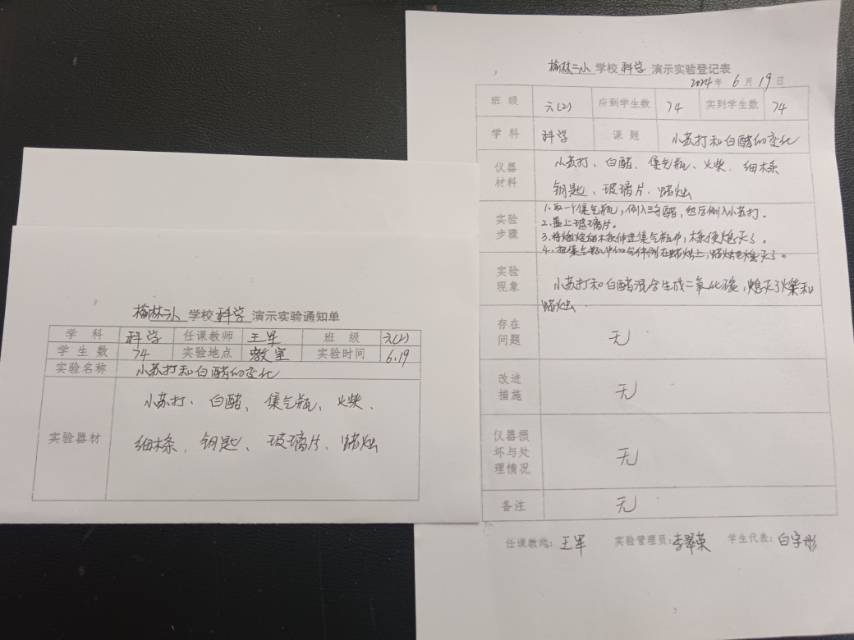 榆林二小 学校 科学 演示实验通知单
学 科 科学 任课教师 王军 班 级 六(2)
学 生 数 74 实验地点 教室 实验时间 6.19
实验名称 小苏打和白醋的变化
实验器材 小苏打、白醋、集气瓶、火柴、
细木条、钥匙、玻璃片、蜡烛
榆林二小 学校 科学 演示实验登记表
2024 年 6 月 19 日
班 级 六(2) 应到学生数 74 实到学生数 74
学 科 科学 课 题 小苏打和白醋的变化
仪器材料 小苏打、白醋、集气瓶、火柴、细木条
钥匙、玻璃片、蜡烛
实验步骤 1.取一个集气瓶,倒入白醋,然后倒入小苏打。
2.盖上玻璃片。
3.将燃烧细木条伸进集气瓶中,木条便熄灭了。
4.把集气瓶中的气体倒在蜡烛上,蜡烛也熄灭了。
实验现象 小苏打和白醋混合生成二氧化碳,熄灭了火柴和
蜡烛
存在问题 无
改进措施 无
仪器损坏与处理情况 无
备注 无
任课教师:王军 实验管理员:李翠荣 学生代表:白宇彤